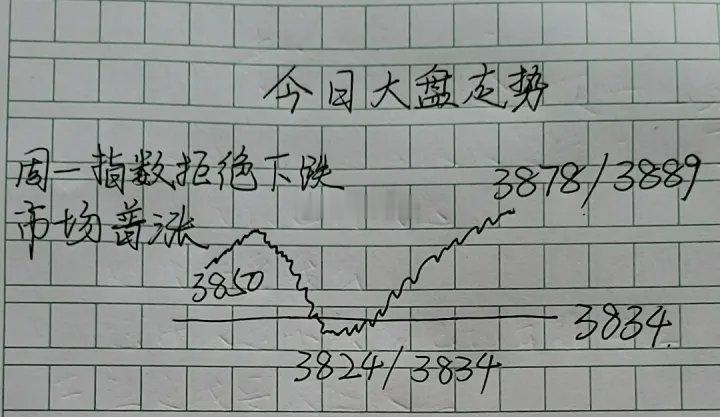 今日大盘走势
周一指数拒绝下跌
市场普涨
3878/3889
3850
3834
3824/3834